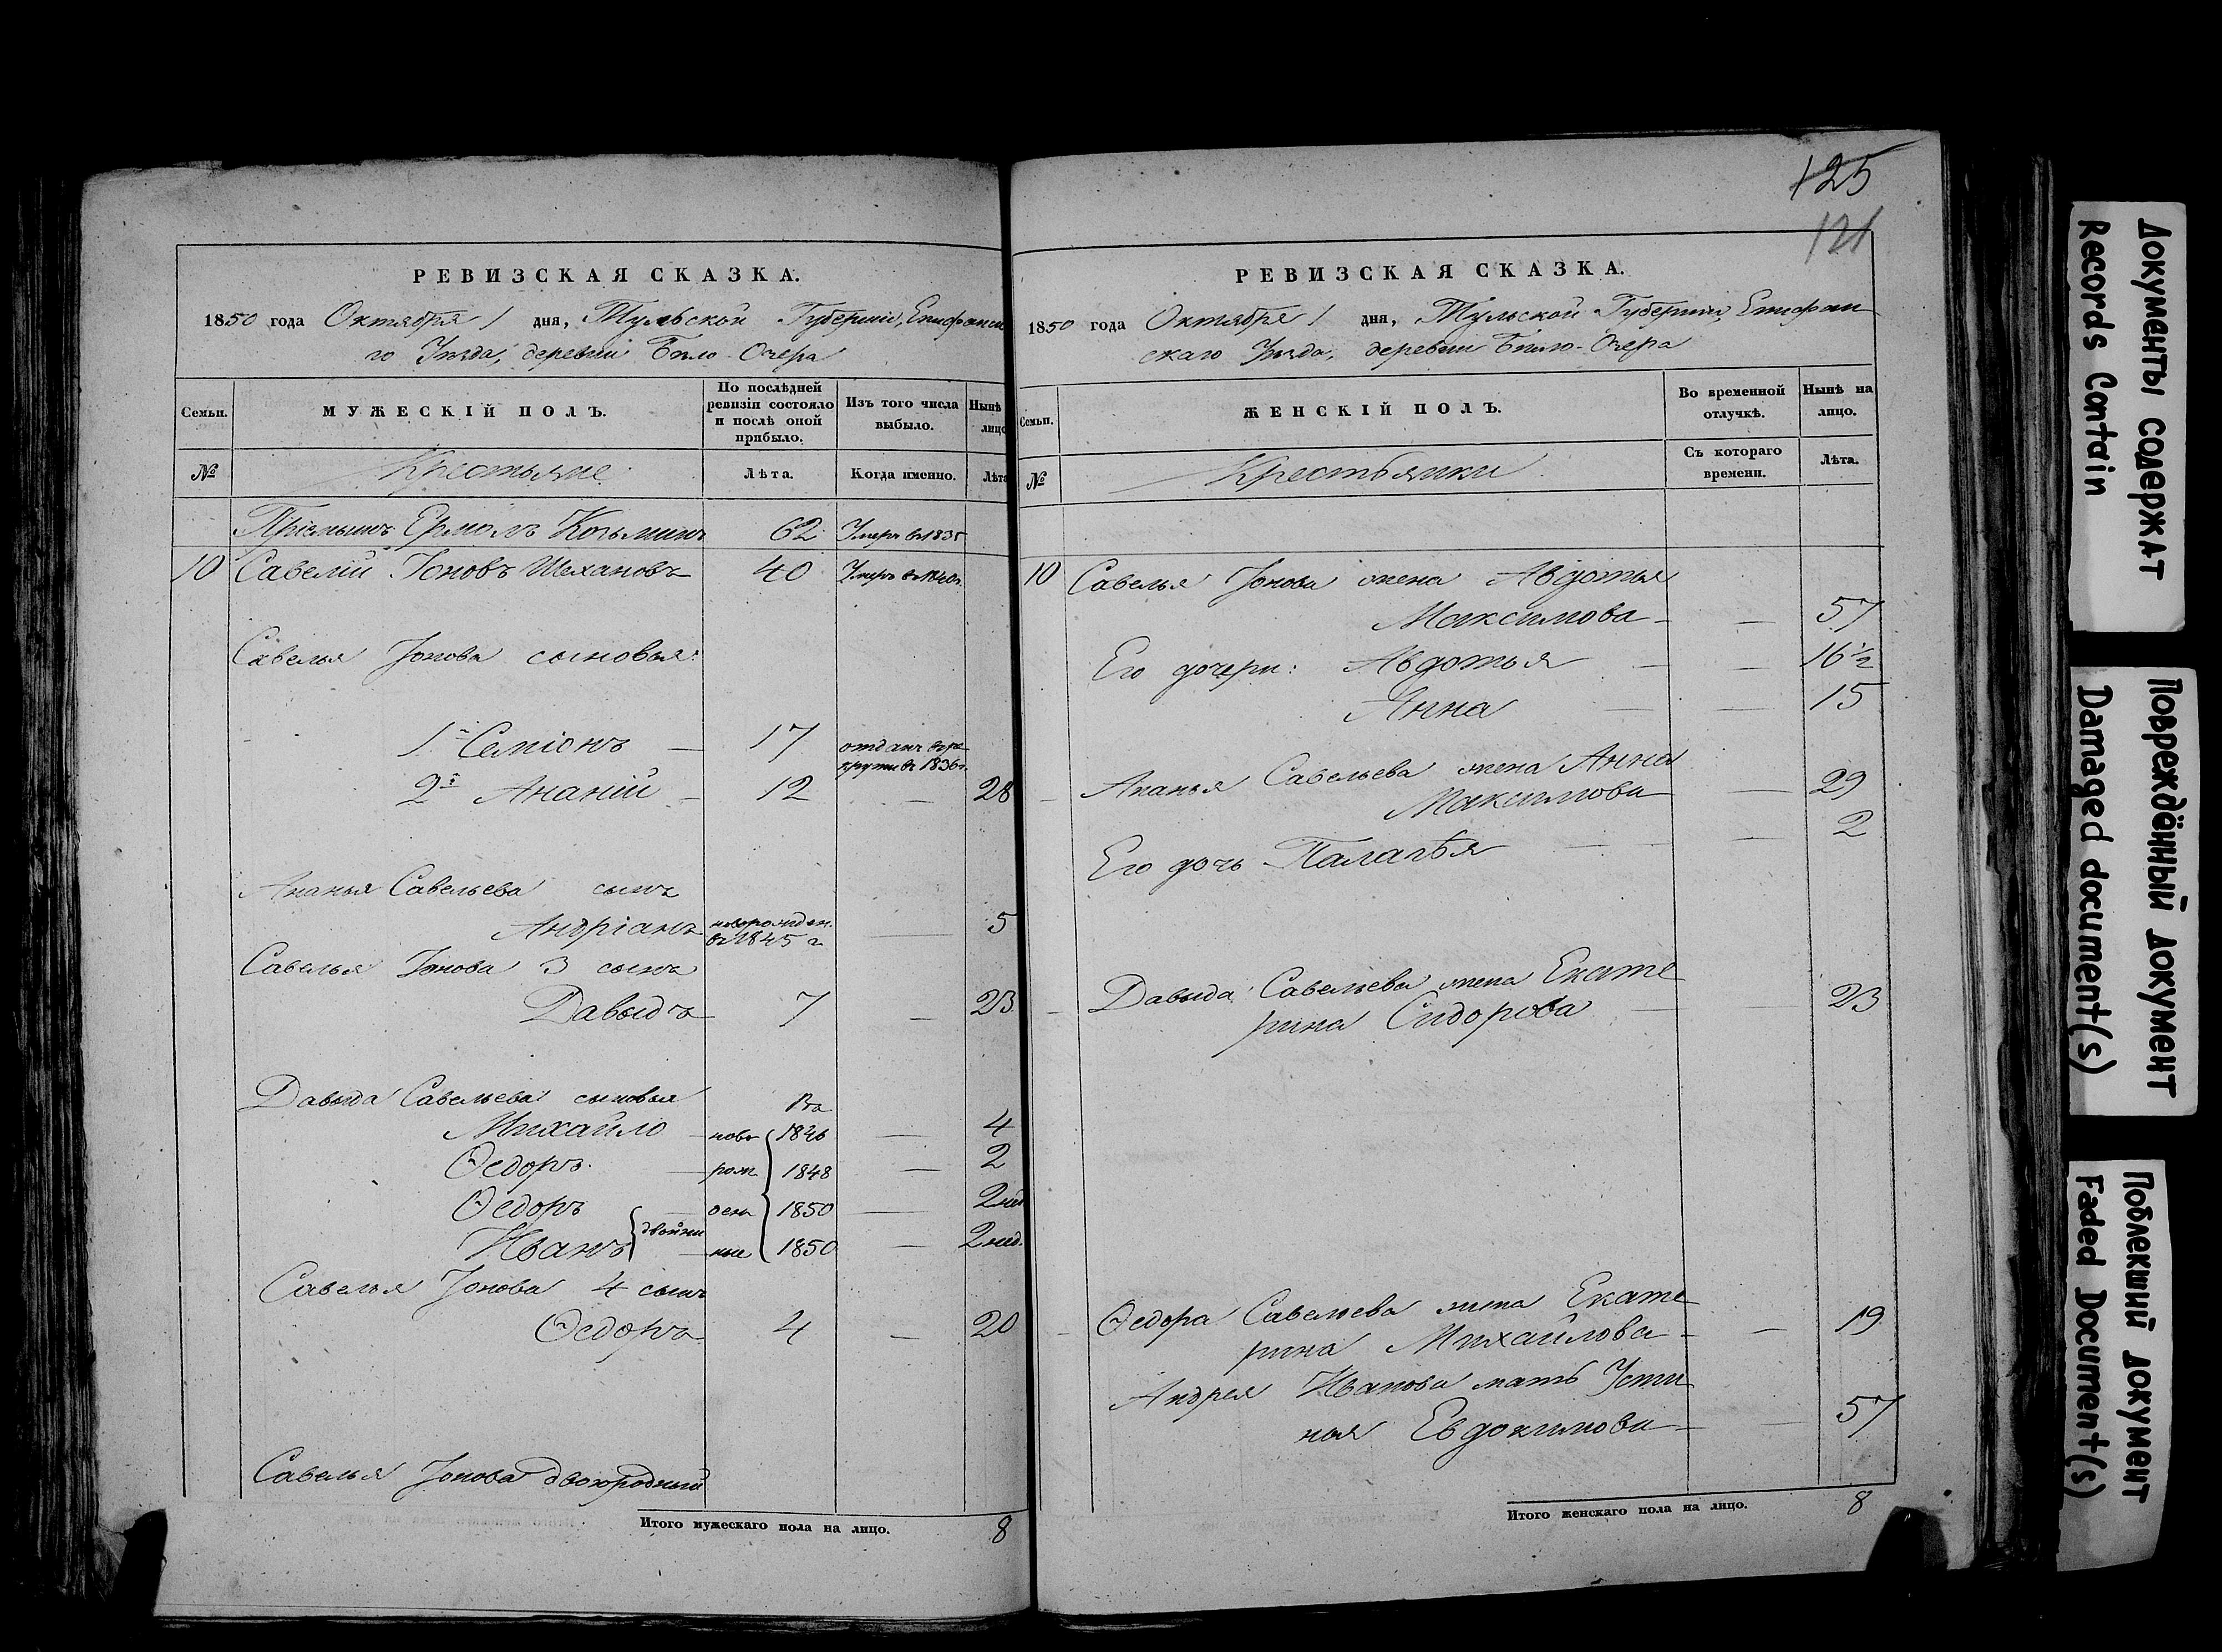 РЕВИЗСКАЯ СКАЗКА.
1850 года Октября 1 дня, Тульской Губернiи, Епифанска
го Уѣзда, деревни Бѣло-Озера
Семьи.
МУЖЕСКIЙ ПОЛЪ.
По послѣдней ревизiи состояло и послѣ оной прибыло.
Изъ того числа выбыло.
Нынѣ
лицо
№
Крестьяне
Лѣта.
Когда именно.
Лѣта
Прiемышъ Ермолъ Козьминъ 62 Умеръ въ 1835
10 Савелiй Iоновъ Шехановъ 40 Умеръ въ 1840г.
Савелья Iонова сыновья:
1й Семiонъ — 17 отданъ въ ре
круты въ 1836г.
2й Ананiй — 12 — 28
Ананья Савельева сынъ
Андрiанъ новорожден. въ 1845 г — 5
Савелья Iонова 3 сынъ
Давыдъ 7 — 23
Давыда Савельева сыновья Въ
Михайло — ново 1846 — 4
Ѳедоръ — рож 1848 — 2
Ѳедоръ — ден 1850 — 2 нед
Иванъ двойни — ные 1850 — 2 нед.
Савелья Iонова 4 сынъ
Ѳедоръ 4 — 20
Савелья Iонова двоюродный
Итого мужескаго пола на лицо. 8
125
121
РЕВИЗСКАЯ СКАЗКА.
1850 года Октября 1 дня, Тульской Губернiи, Епифан
скаго Уѣзда, деревни Бѣло-Озера
Семьи.
ЖЕНСКIЙ ПОЛЪ.
Во временной отлучкѣ.
Нынѣ на лицо.
№
Крестьянки
Съ котораго времени.
Лѣта.
10 Савелья Iонова жена Авдотья
Максимова — — 57
Его дочери: Авдотья — — 16½
Анна — — 15
Ананья Савельева жена Анна
Максимова — 29
Его дочь Палагѣя — — 2
Давыда Савельева жена Екате
рина Сидорова — — 23
Ѳедора Савельева жена Екате
рина Михайлова — — 19
Андрея Иванова мать Усти
нья Евдокимова — — 57
Итого женскаго пола на лицо. 8
Документы содержат
Records Contain
Повреждённый документ
Damaged document(s)
Поблекший документ
Faded Document(s)